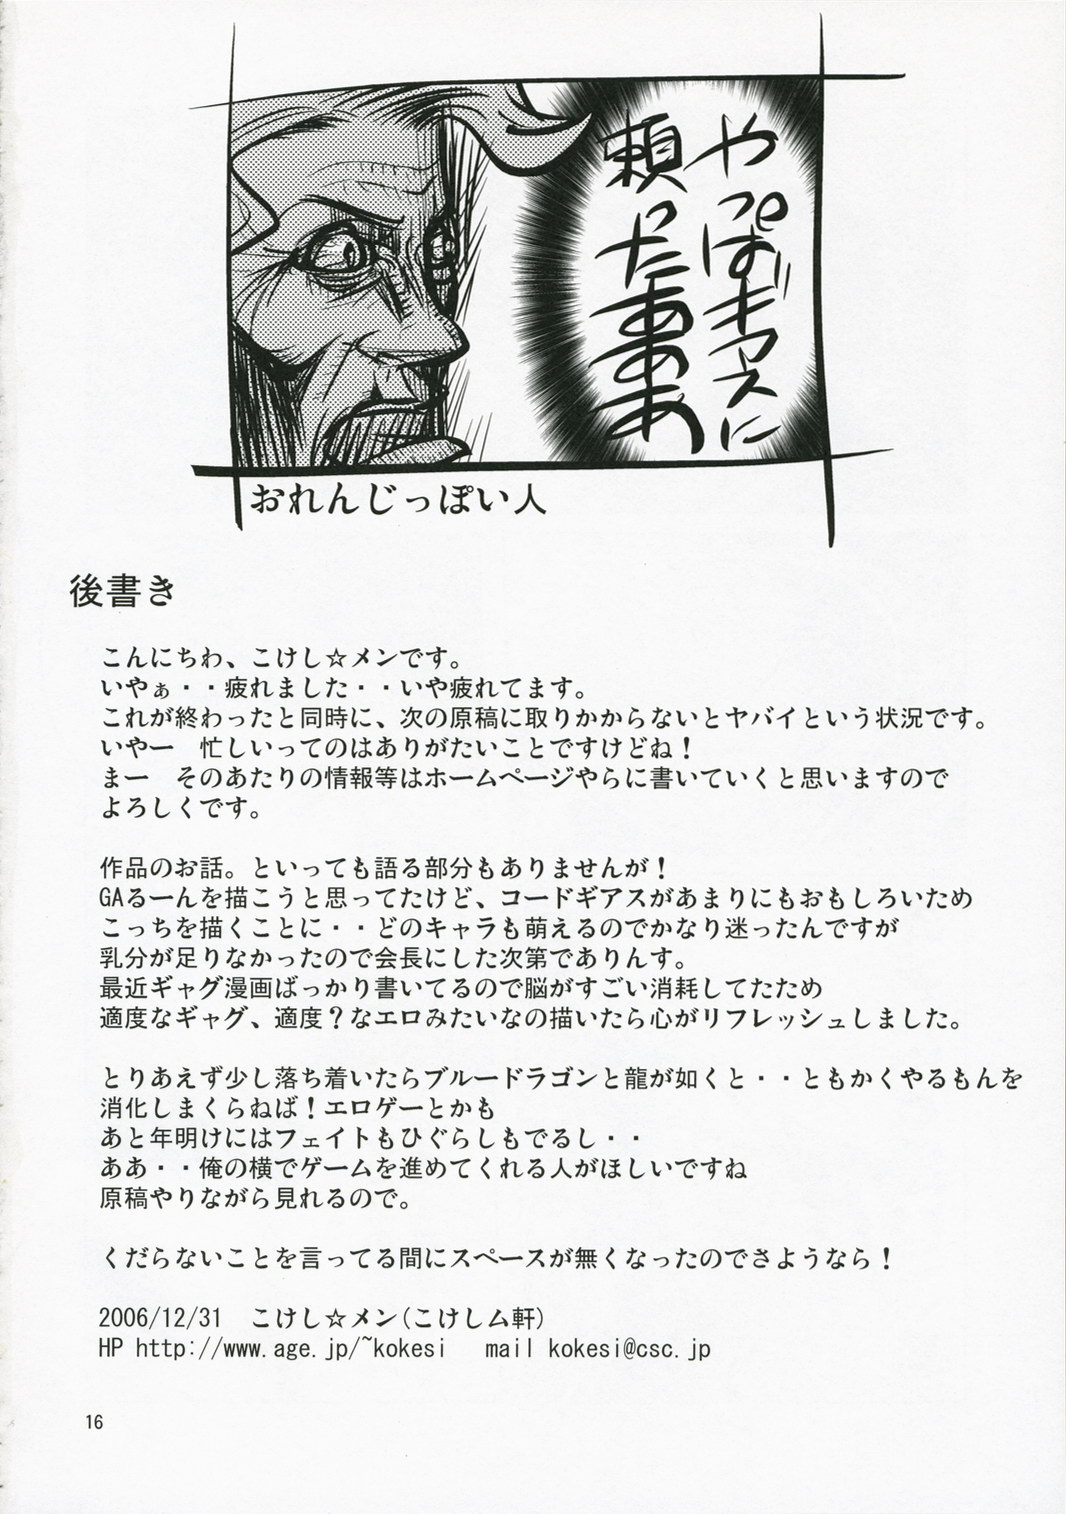 やっぱギアスに
頼ったああああ
おれんじっぽい人
後書き
こんにちわ、こけし☆メンです。
いやぁ・・疲れました・・いや疲れてます。
これが終わったと同時に、次の原稿に取りかからないとヤバイという状況です。
いやー　忙しいってのはありがたいことですけどね！
まー　そのあたりの情報等はホームページやらに書いていくと思いますので
よろしくです。
作品のお話。といっても語る部分もありませんが！
GAるーんを描こうと思ってたけど、コードギアスがあまりにもおもしろいため
こっちを描くことに・・どのキャラも萌えるのでかなり迷ったんですが
乳分が足りなかったので会長にした次第でありんす。
最近ギャグ漫画ばっかり書いてるので脳がすごい消耗してたため
適度なギャグ、適度？なエロみたいなの描いたら心がリフレッシュしました。
とりあえず少し落ち着いたらブルードラゴンと龍が如くと・・ともかくやるもんを
消化しまくらねば！エロゲーとかも
あと年明けにはフェイトもひぐらしもでるし・・
ああ・・俺の横でゲームを進めてくれる人がほしいですね
原稿やりながら見れるので。
くだらないことを言ってる間にスペースが無くなったのでさようなら！
2006/12/31　こけし☆メン(こけしム軒)
HP http://www.age.jp/~kokesi　mail kokesi@csc.jp
16